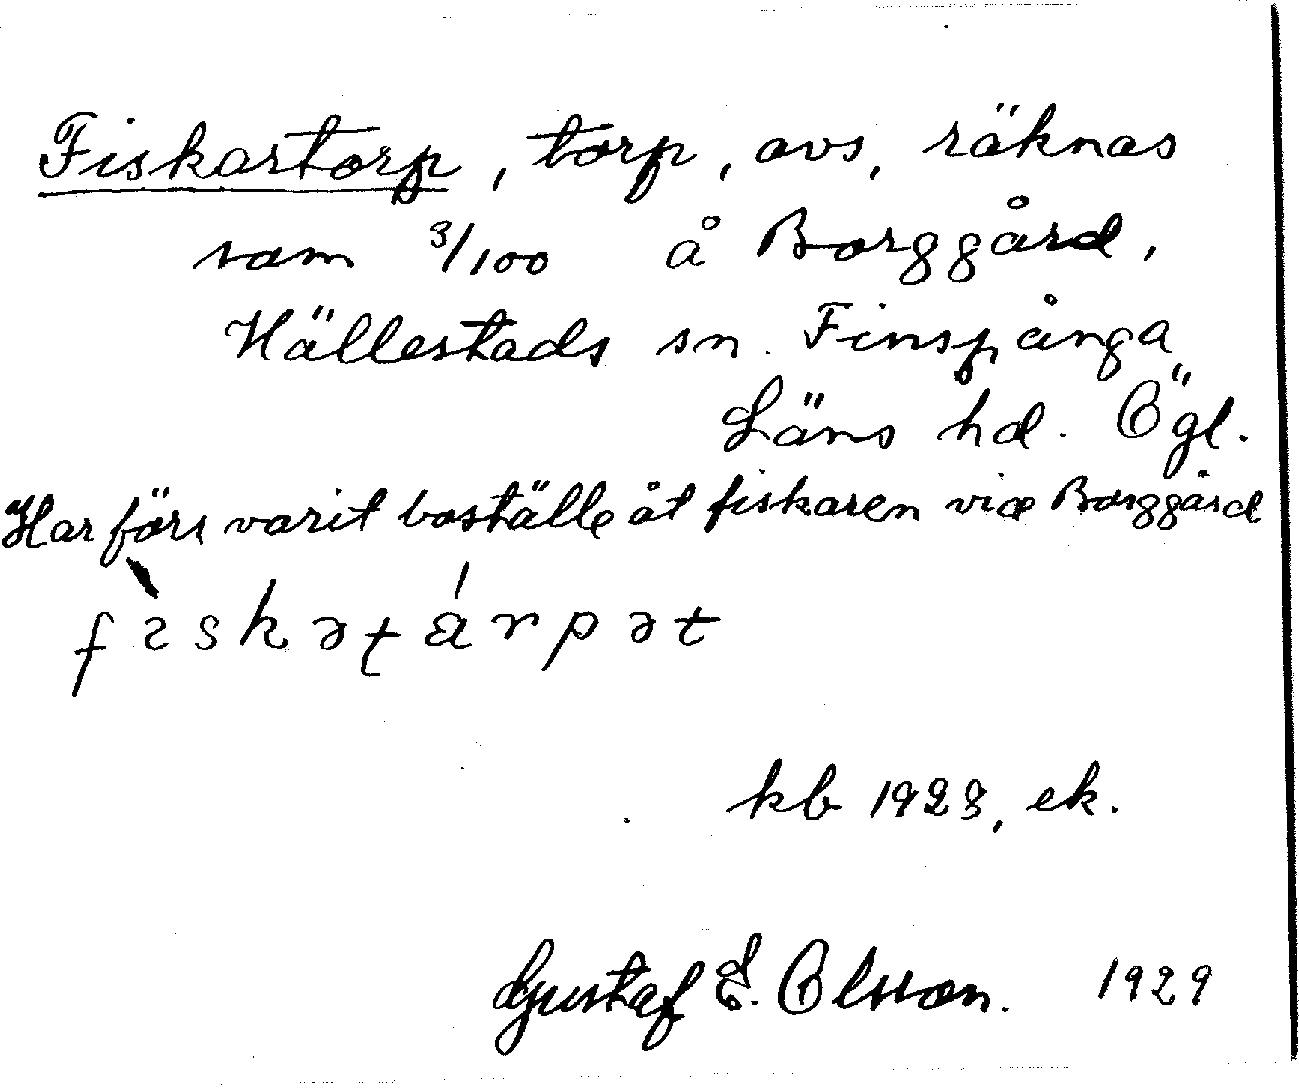 Fiskartorp, torp, avs, räknas
som 3/100 å Borggård,
Hällestads sn. Finspånga
Läns hd. Ögl.
Har förs varit boställe åt fiskaren vid Borggård
kb 1928, ek.
Gustaf E. Olsson. 1929